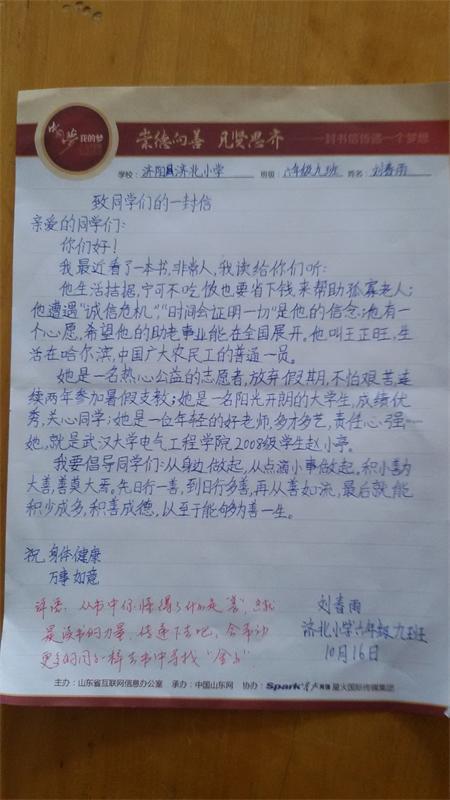 中国梦 我的梦
崇德向善 见贤思齐
一封书信传递一个梦想
学校：济阳县济北小学 班级：六年级九班 姓名：刘春雨
致同学们的一封信
亲爱的同学们：
你们好！
我最近看了一本书，非常人，我读给你们听：
他生活拮据，宁可不吃饭也要省下钱来帮助孤寡老人；
他遭遇“诚信危机”，“时间会证明一切”是他的信念；他有一
个心愿，希望他的助老事业能在全国展开。他叫王正旺，生
活在哈尔滨，中国广大农民工的普通一员。
她是一名热心公益的志愿者，放弃假期，不怕艰苦连
续两年参加暑假支教；她是一名阳光开朗的大学生，成绩优
秀，关心同学；她是一位年轻的好老师，多才多艺，责任心强…
她，就是武汉大学电气工程学院2008级学生赵小亭。
我要倡导同学们：从身边做起，从点滴小事做起，积小善为
大善，善莫大焉。先日行一善，到日行多善，再从善如流，最后就能
积少成多，积善成德，以至于能够为善一生。
祝 身体健康
万事如意
刘春雨
济北小学六年级九班
10月16日
评语：从书中你懂得了什么是“善”，
是读书的力量，传递下去吧，会带动
更多的同学一样去书中寻找“金子”。
主办：山东省互联网信息办公室 承办：中国山东网 协办：Spark 星火国际传媒集团